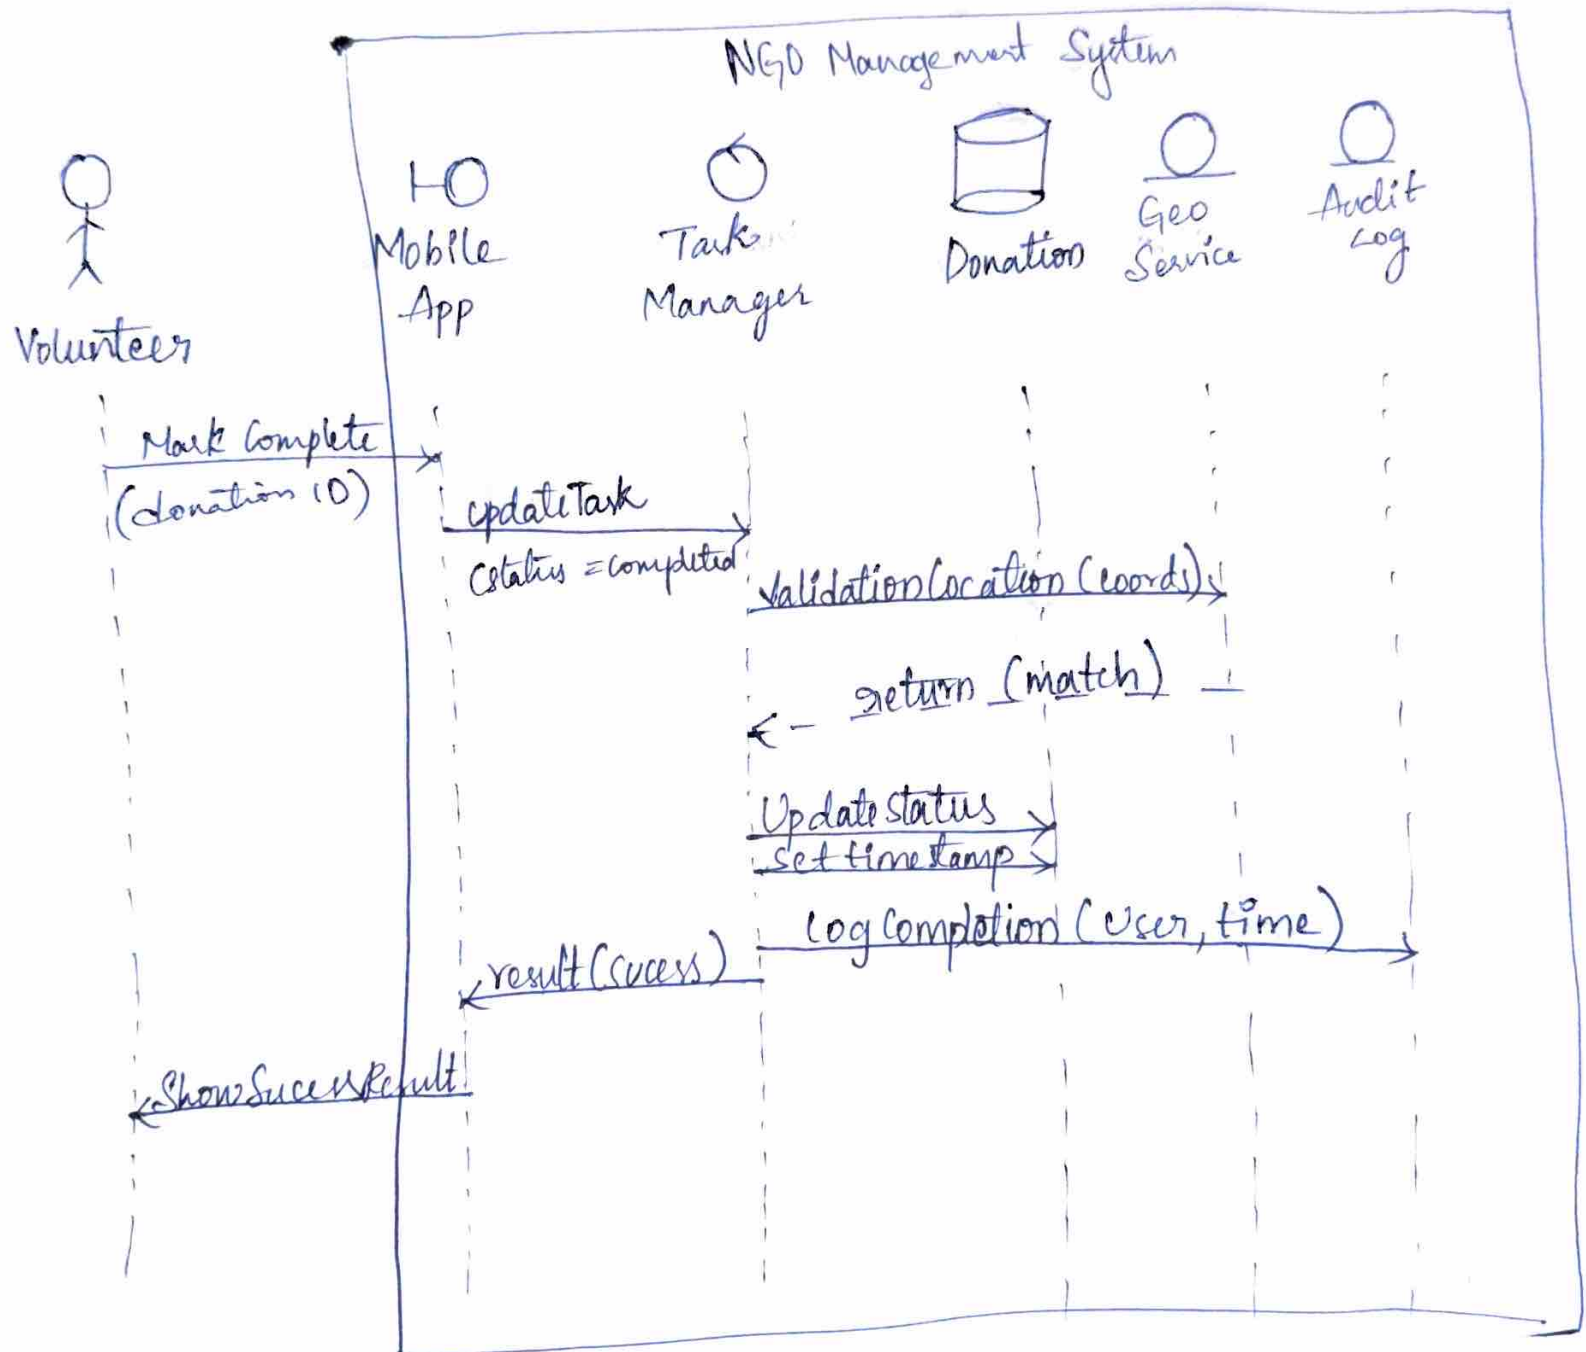 NGO Management System
Mobile
App
Task
Manager
Donation
Geo
Service
Audit
Log
Volunteer
Mark Complete
(donation ID)
updateTask
(status = completed
validationLocation (coords)
return (match)
Update status
set timestamp
log Completion (User, time)
result (sucess)
ShowSucessResult